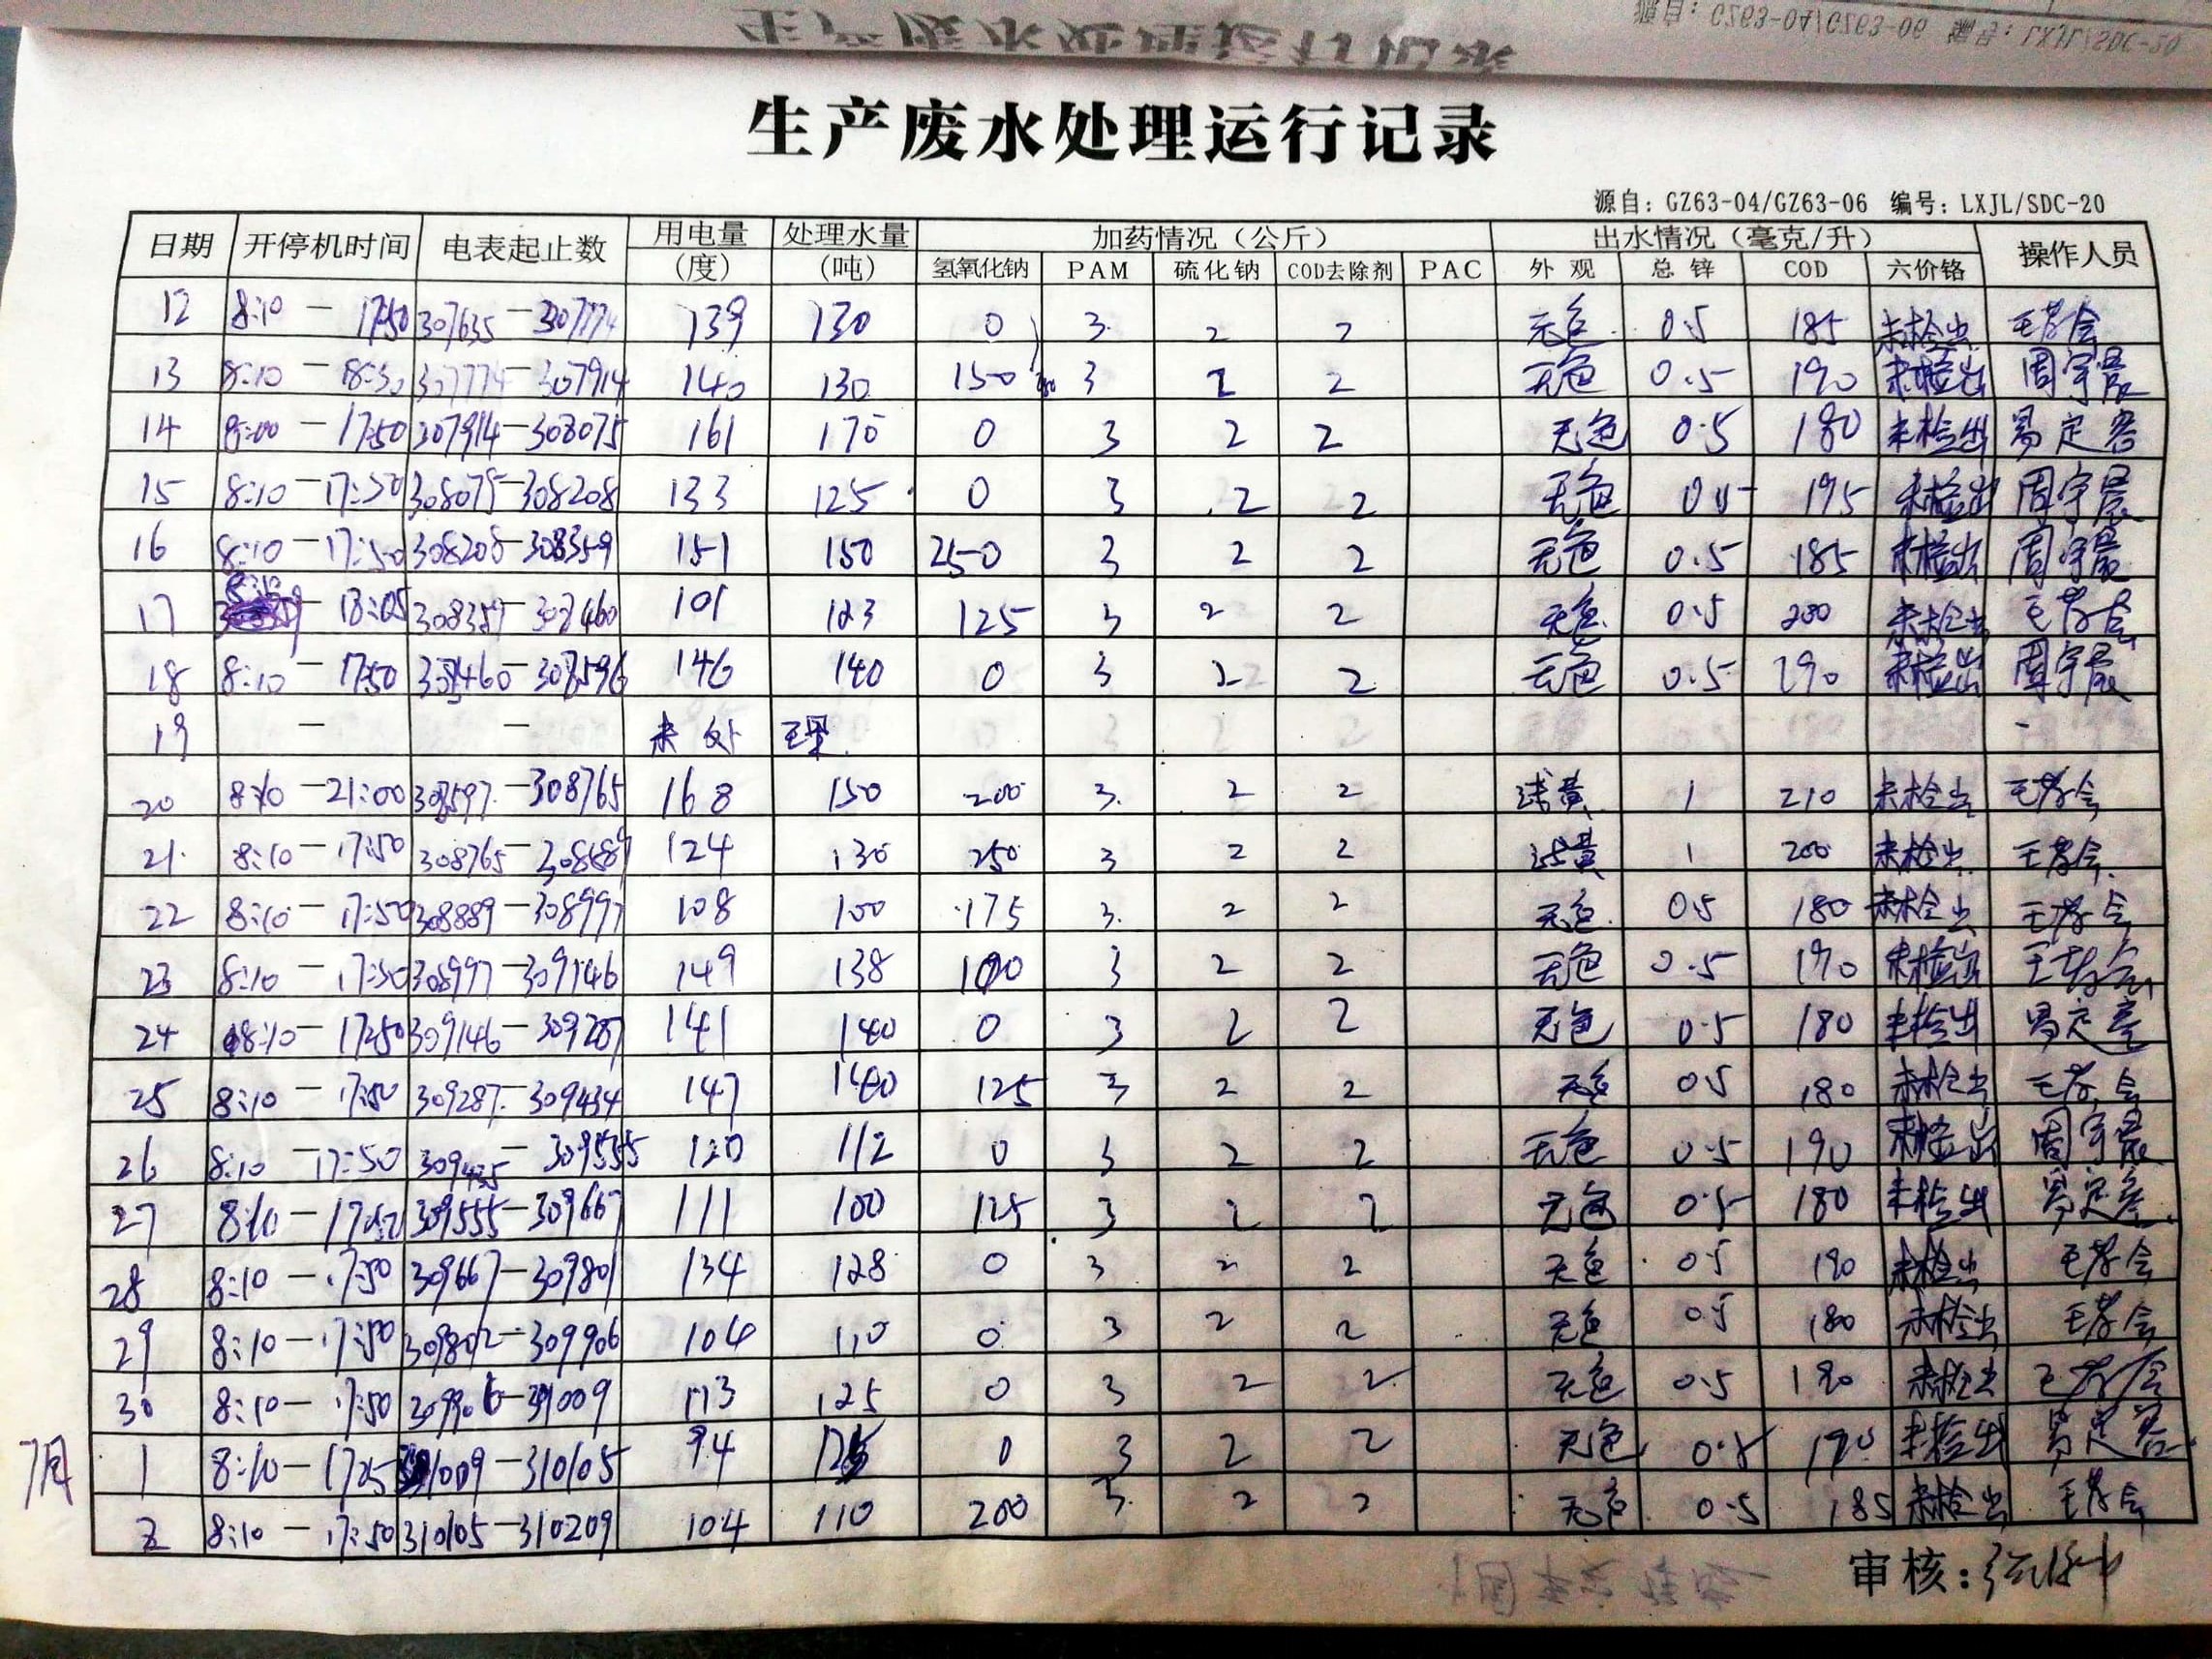 生产废水处理运行记录
源自: GZ63-04/GZ63-06 编号: LXJL/SDC-20
日期 开停机时间 电表起止数 用电量(度) 处理水量(吨) 加药情况(公斤) 出水情况(毫克/升) 操作人员
氢氧化钠 PAM 硫化钠 COD去除剂 PAC 外观 总锌 COD 六价铬
12 8:10 — 17:50 307635 — 307774 139 130 0 3 2 2 无色 0.5 185 未检出
13 8:10 — 18:30 307774 — 307914 140 130 150 3 2 2 无色 0.5 190 未检出 周宇晨
14 8:00 — 17:50 307914 — 308075 161 170 0 3 2 2 无色 0.5 180 未检出
15 8:10 — 17:50 308075 — 308208 133 125 0 3 2 2 无色 0.5 195 未检出 周宇晨
16 8:10 — 17:50 308208 — 308359 151 150 250 3 2 2 无色 0.5 185 未检出 周宇晨
17 8:10 — 18:05 308359 — 308460 101 123 125 3 2 2 无色 0.5 200 未检出
18 8:10 — 17:50 308460 — 308596 146 140 0 3 2 2 无色 0.5 190 未检出 周宇晨
19 — — 未处理 -
20 8:10 — 21:00 308597 — 308765 168 150 200 3 2 2 浅黄 1 210 未检出
21 8:10 — 17:50 308765 — 308889 124 130 250 3 2 2 浅黄 1 200 未检出
22 8:10 — 17:50 308889 — 308997 108 100 175 3 2 2 无色 0.5 180 未检出
23 8:10 — 17:50 308997 — 309146 149 138 100 3 2 2 无色 0.5 190 未检出
24 8:10 — 17:50 309146 — 309287 141 140 0 3 2 2 无色 0.5 180 未检出
25 8:10 — 17:50 309287 — 309434 147 140 125 3 2 2 无色 0.5 180 未检出
26 8:10 — 17:50 309435 — 309555 120 112 0 3 2 2 无色 0.5 190 未检出 周宇晨
27 8:10 — 309555 — 309667 111 100 125 3 2 2 无色 0.5 180 未检出
28 8:10 — 17:50 309667 — 309801 134 128 0 3 2 2 无色 0.5 190 未检出
29 8:10 — 17:50 309802 — 309906 104 110 0 3 2 2 无色 0.5 180 未检出
30 8:10 — 17:50 309906 — 31009 113 125 0 3 2 2 无色 0.5 190 未检出
7月 1 8:10 — 1009 — 310105 94 0 3 2 2 无色 0.5 190 未检出
2 8:10 — 17:50 310105 — 310209 104 110 200 3 2 2 无色 0.5 185 未检出
审核: